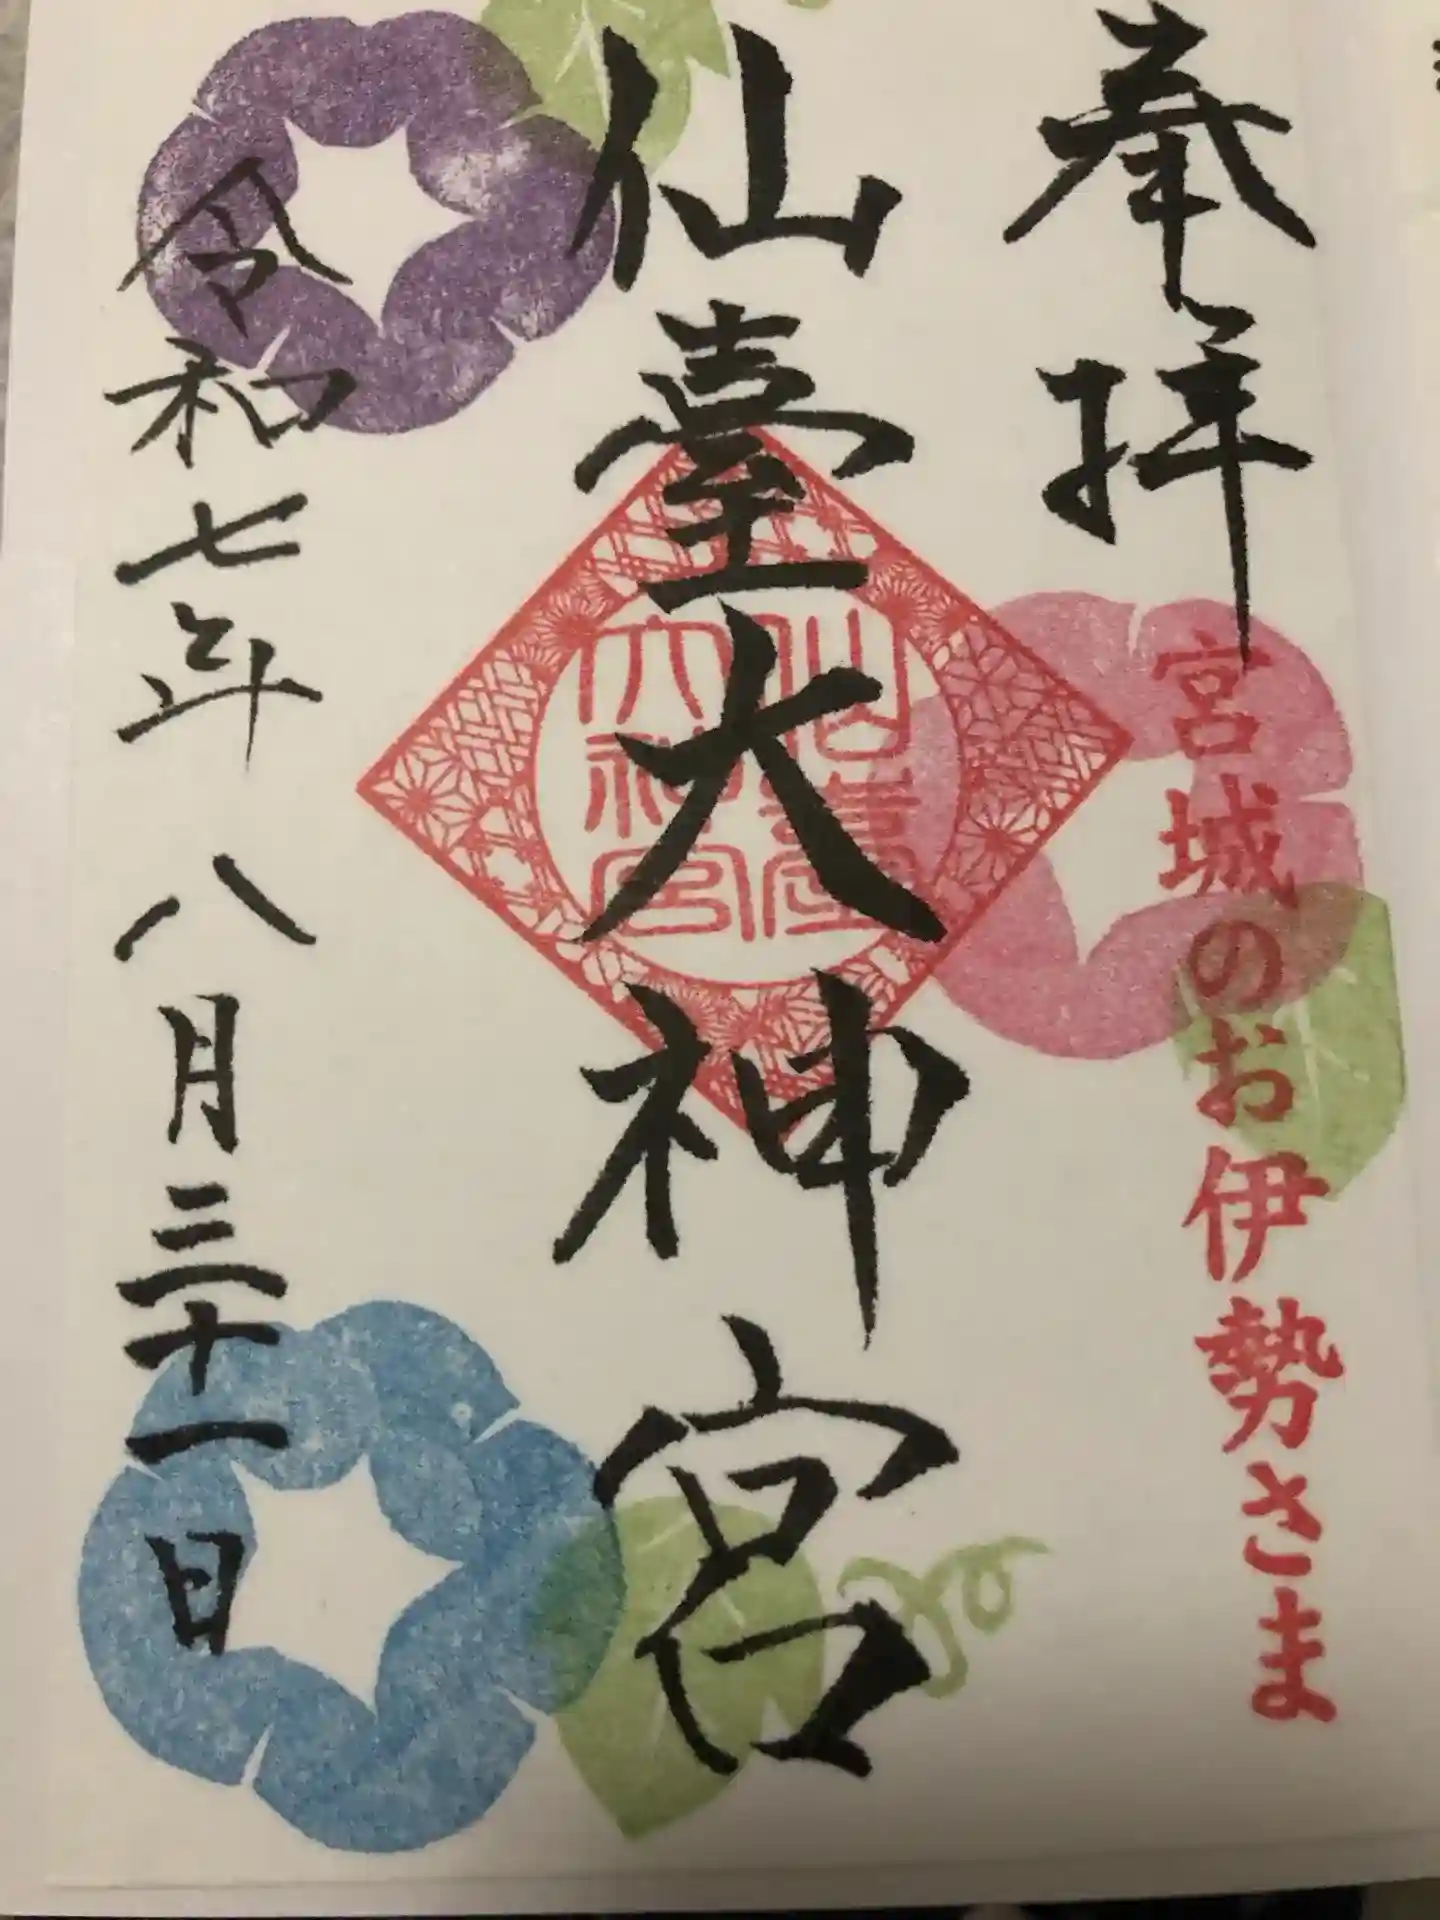 奉拝
宮城のお伊勢さま
仙臺大神宮
仙臺
大神宮
令和七年 八月三十一日